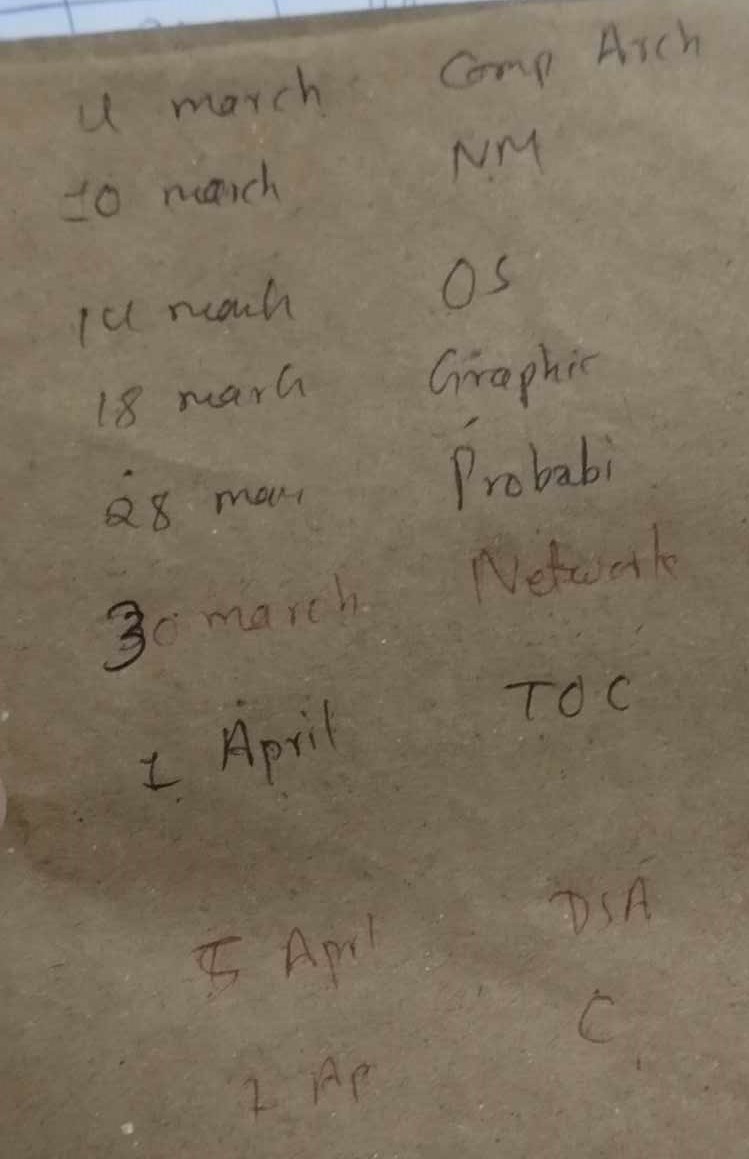 4 march Comp Arch
10 march NM
14 march OS
18 march Graphic
28 mar Probabi
30 march Network
1 April TOC
5 April DSA
Ap C